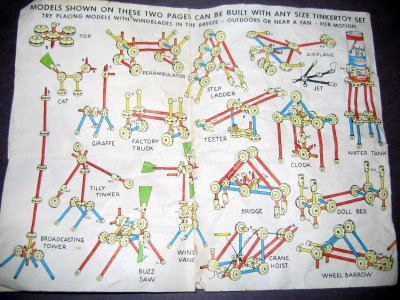 MODELS SHOWN ON THESE TWO PAGES CAN BE BUILT WITH ANY SIZE TINKERTOY SET
TRY PLACING MODELS WITH WINDBLADES IN THE BREEZE - OUTDOORS OR NEAR A FAN - FOR MOTION
TOP
PERAMBULATOR
STEP
LADDER
AIRPLANE
JET
CAT
GIRAFFE
FACTORY
TRUCK
TEETER
CLOCK
WATER TANK
TILLY
TINKER
BRIDGE
DOLL BED
BROADCASTING
TOWER
BUZZ
SAW
WIND
VANE
CRANE
HOIST
WHEEL BARROW